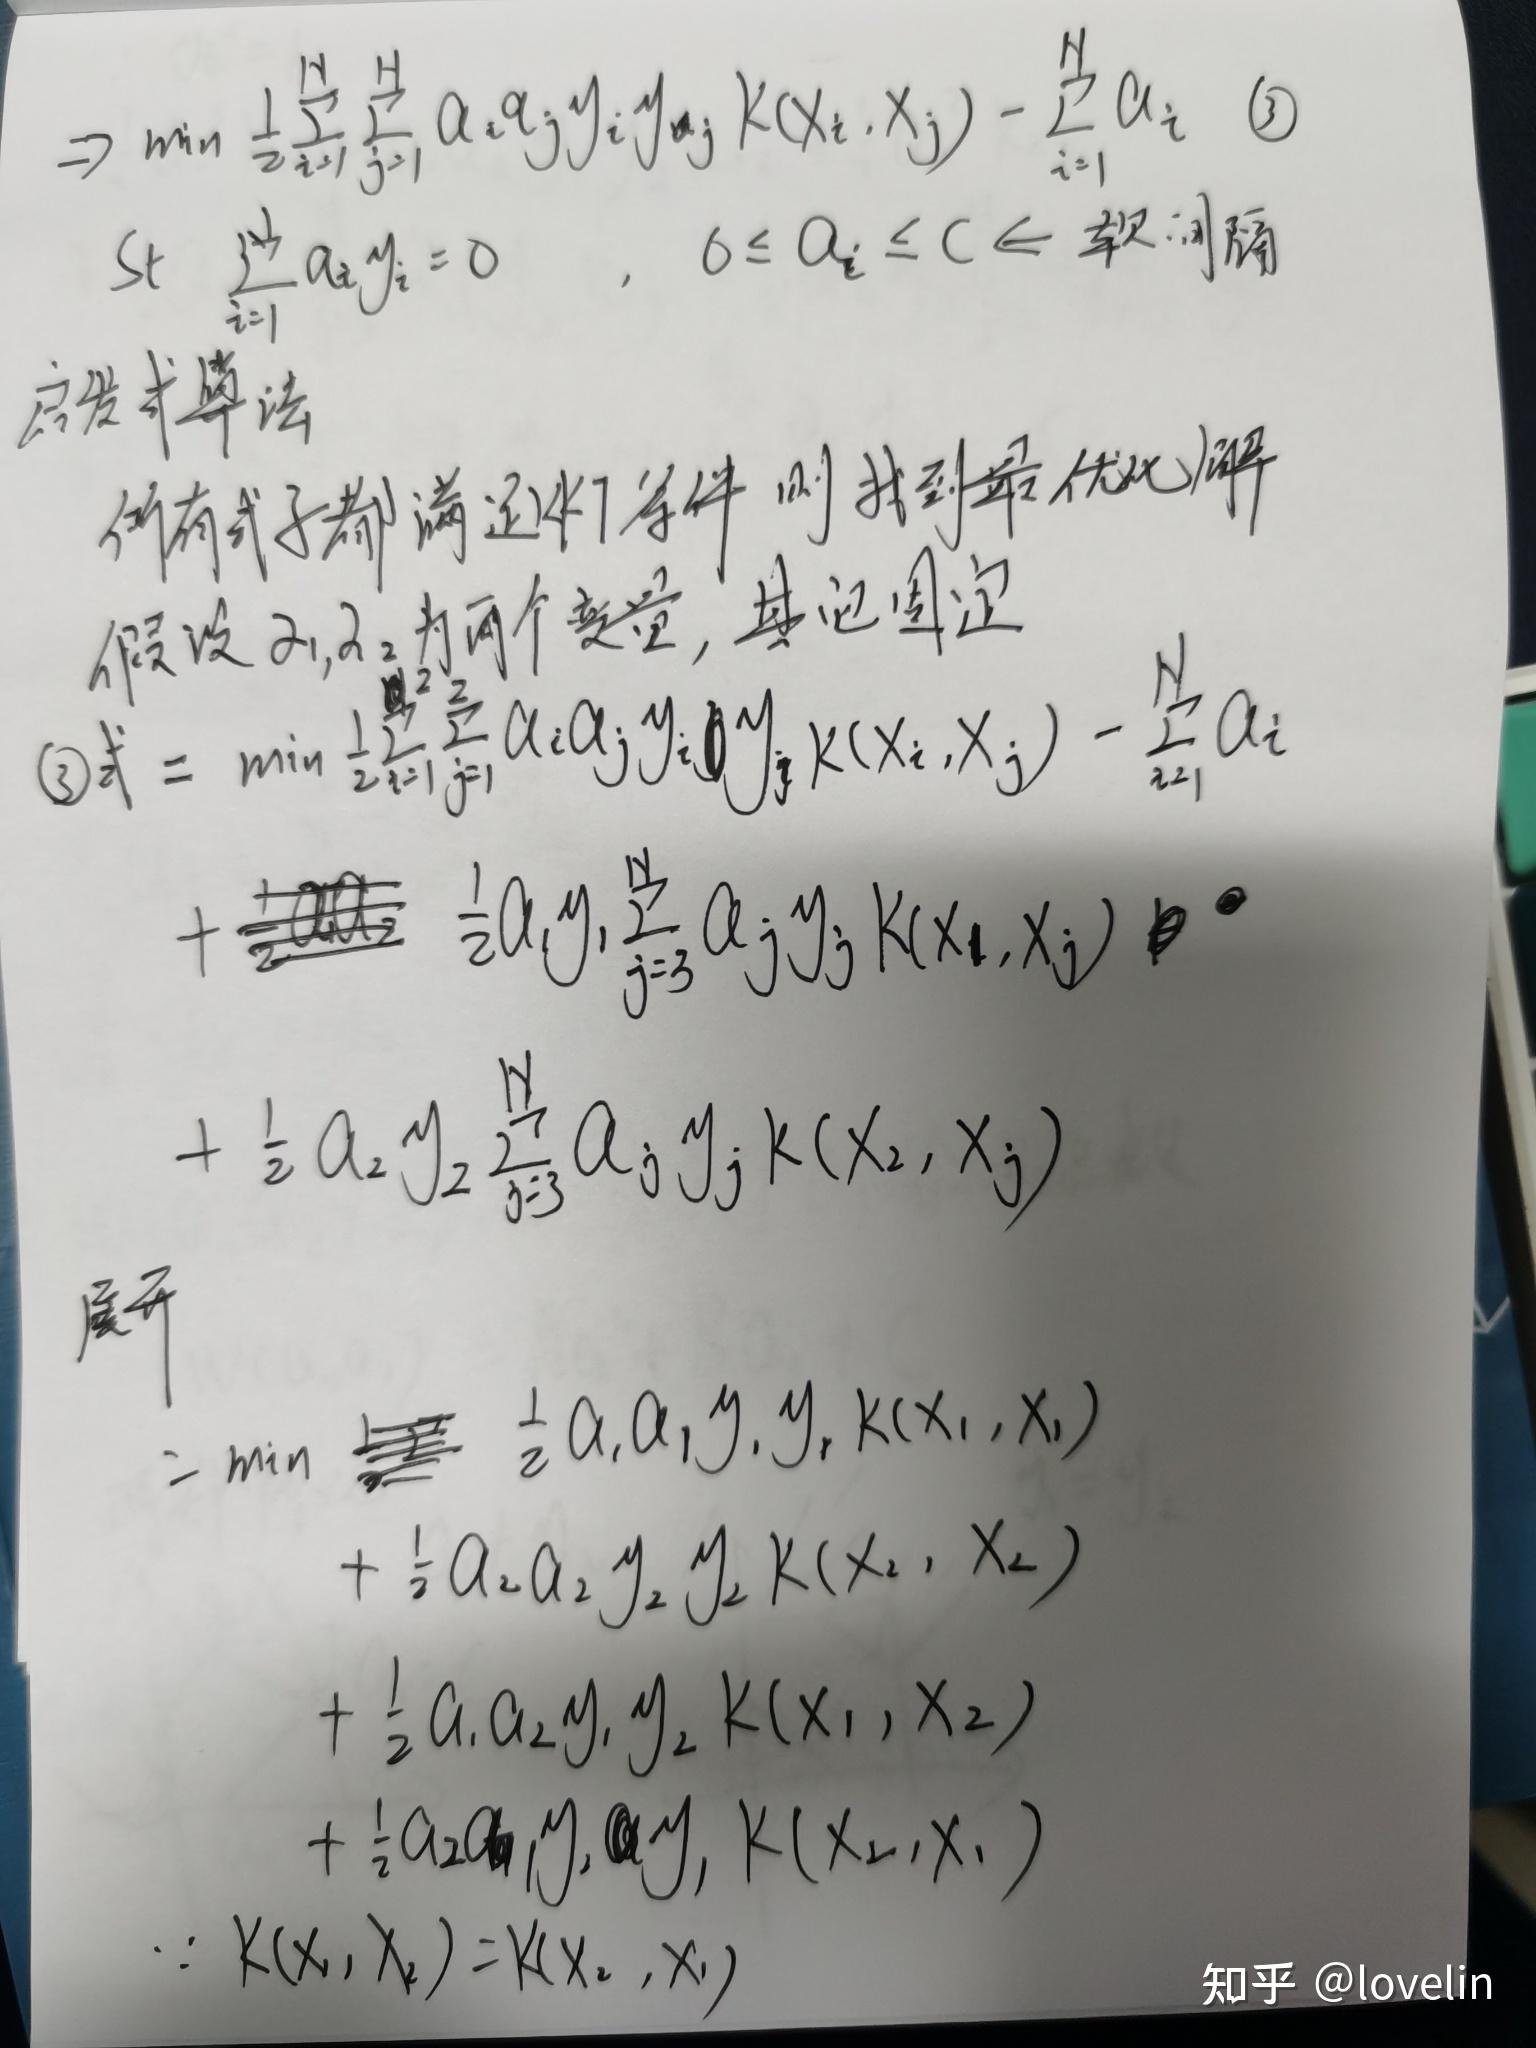 ⇒ min 1/2 Σ_{i=1}^{N} Σ_{j=1}^{N} a_i a_j y_i y_j K(x_i, x_j) - Σ_{i=1}^{N} a_i ③
St Σ_{i=1}^{N} a_i y_i = 0 , 0 ≤ a_i ≤ C ← 软间隔
启发式算法
所有式子都满足KKT条件 则找到最优化解
假设 α_1, α_2 为两个变量, 其它固定
③式 = min 1/2 Σ_{i=1}^{2} Σ_{j=1}^{2} a_i a_j y_i y_j K(x_i, x_j) - Σ_{i=1}^{N} a_i
+ 1/2 a_1 y_1 Σ_{j=3}^{N} a_j y_j K(x_1, x_j)
+ 1/2 a_2 y_2 Σ_{j=3}^{N} a_j y_j K(x_2, x_j)
展开
= min 1/2 a_1 a_1 y_1 y_1 K(x_1, x_1)
+ 1/2 a_2 a_2 y_2 y_2 K(x_2, x_2)
+ 1/2 a_1 a_2 y_1 y_2 K(x_1, x_2)
+ 1/2 a_2 a_1 y_2 y_1 K(x_2, x_1)
∵ K(x_1, x_2) = K(x_2, x_1)
知乎 @lovelin